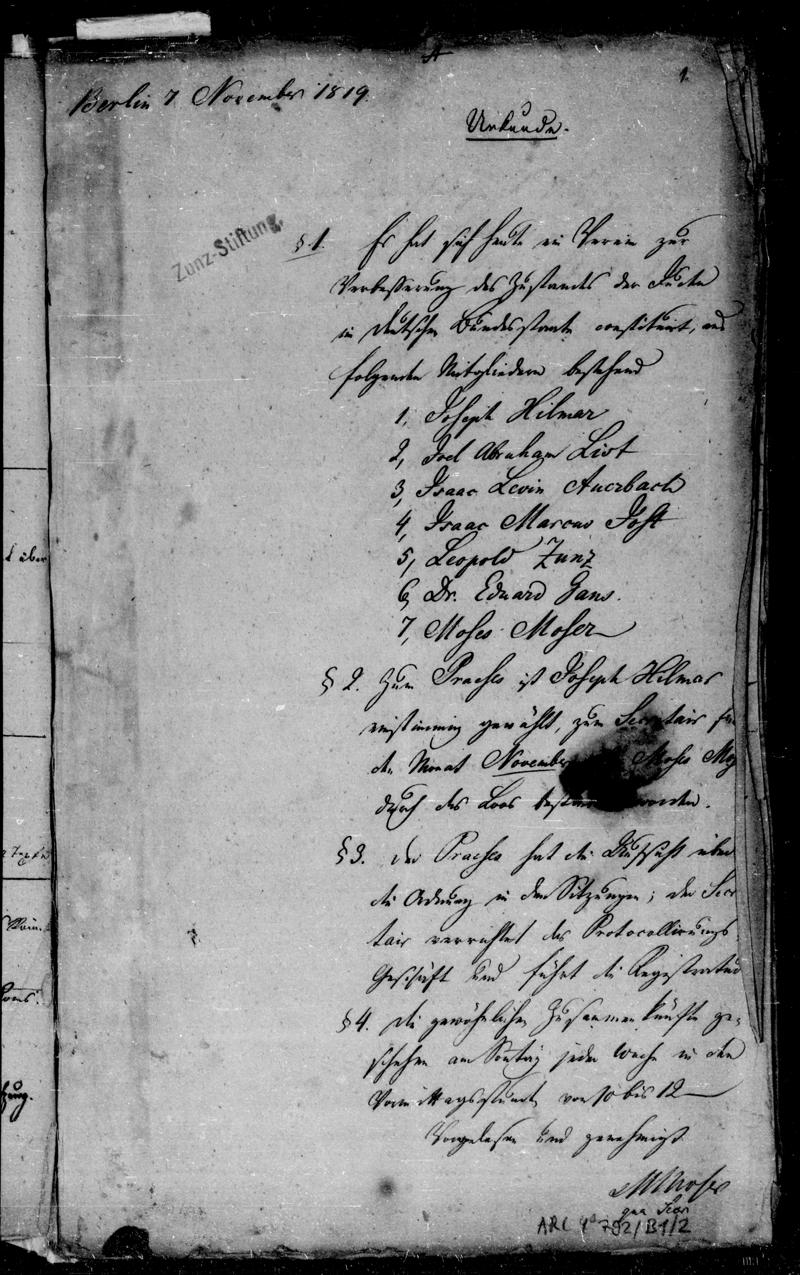 A
1.
Berlin 7 November 1819.
Urkunde.
Zunz-Stiftung.
§.1. Es hat sich heute ein Verein zur
Verbesserung des Zustandes der Juden
im deutschen Bundesstaate constituirt, aus
folgenden Mitgliedern bestehend
1, Joseph Hilmar
2, Joel Abraham List
3, Isaac Levin Auerbach
4, Isaac Marcus Jost
5, Leopold Zunz
6, Dr. Eduard Gans.
7, Moses Moser
§ 2. Zum Praeses ist Joseph Hilmar
einstimmig gewählt, zum Secretair für
den Monat November Moses Mos
durch das Loos bestimmt worden.
§ 3. Der Praeses hat die Aufsicht über
die Ordnung in den Sitzungen; der Secr
tair verrichtet das Protocollirungs
Geschäft und führt die Registratur
§ 4. Die gewöhnlichen Zusammenkünfte ge-
schehen am Sontag jeder Woche in den
Vormittagsstunden von 10 bis 12
Vorgelesen und genehmigt
M Moser
qua Secr
ARC 4° 792/B1/2
t über